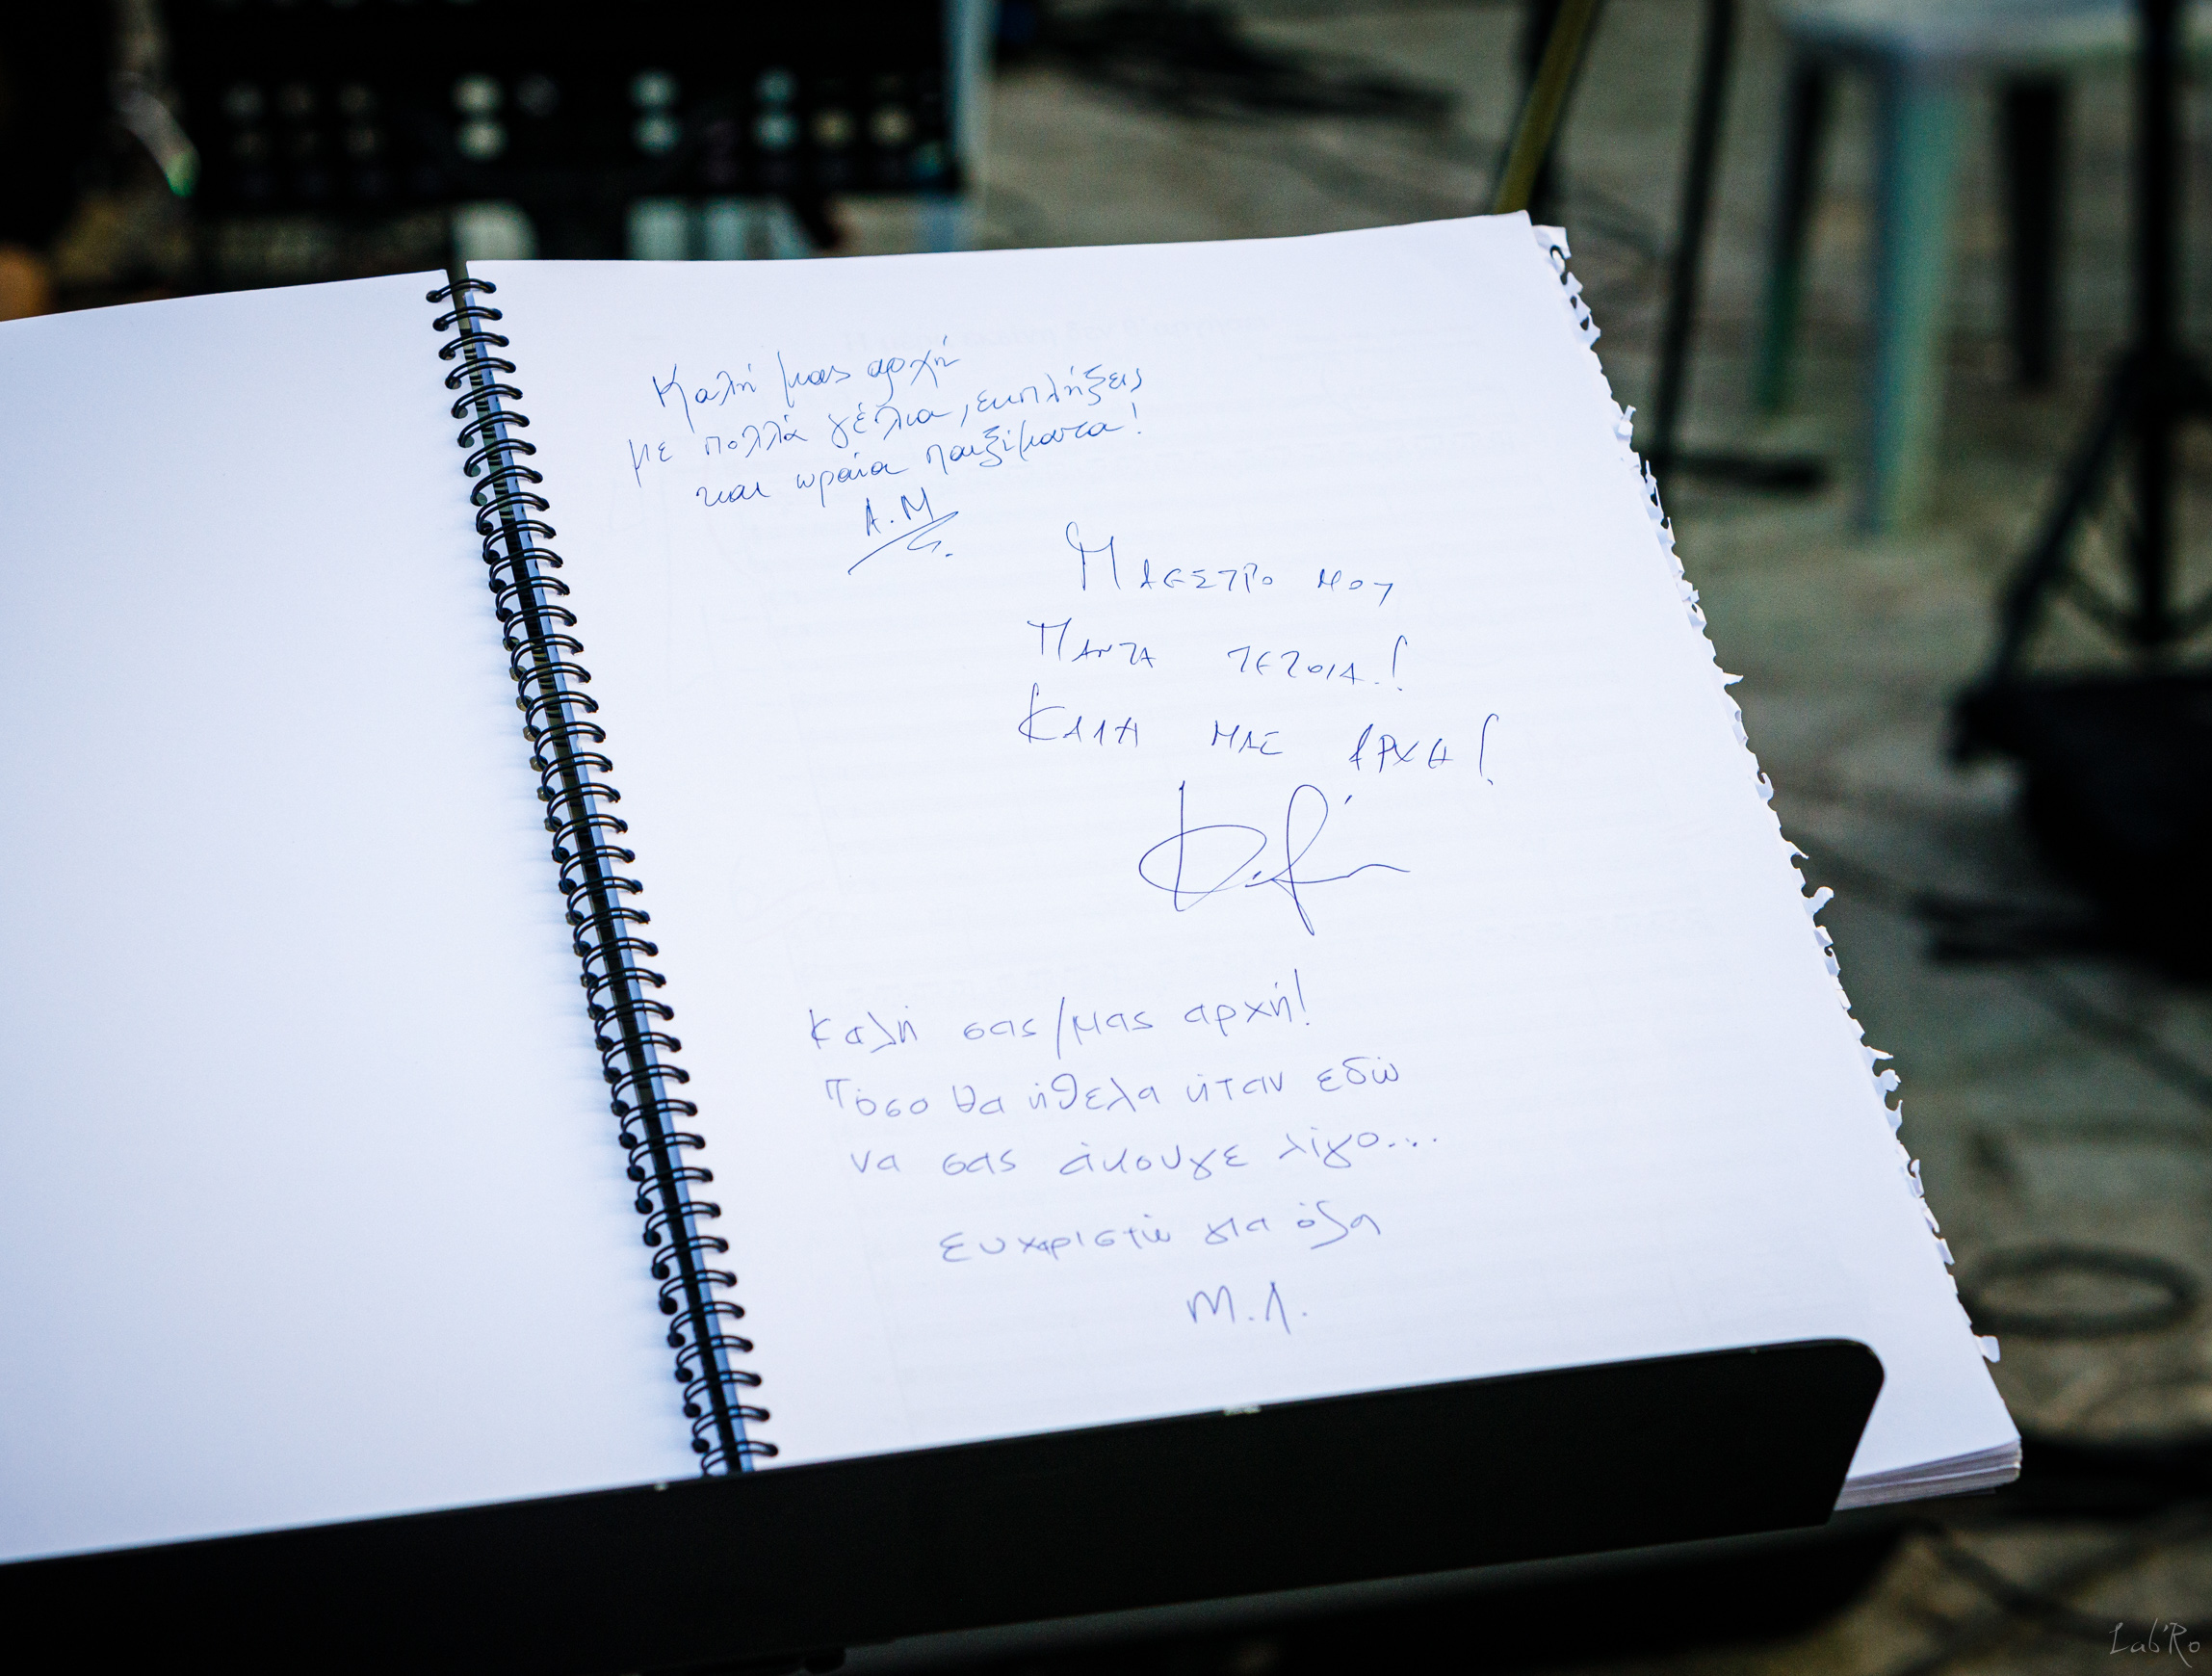 Καλή μας αρχή
με πολλά γέλια, εκπλήξεις
και ωραία παιξίματα!
Α.Μ
ΜΑΕΣΤΡΟ ΜΟΥ
ΠΑΝΤΑ ΤΕΤΟΙΑ.!
ΚΑΛΗ ΜΑΣ ΑΡΧΗ!
Καλή σας/μας αρχή!
Πόσο θα ήθελα ήταν εδώ
να σας άκουγε λίγο...
ευχαριστώ για όλα
Μ.Λ.
Lab'Ro